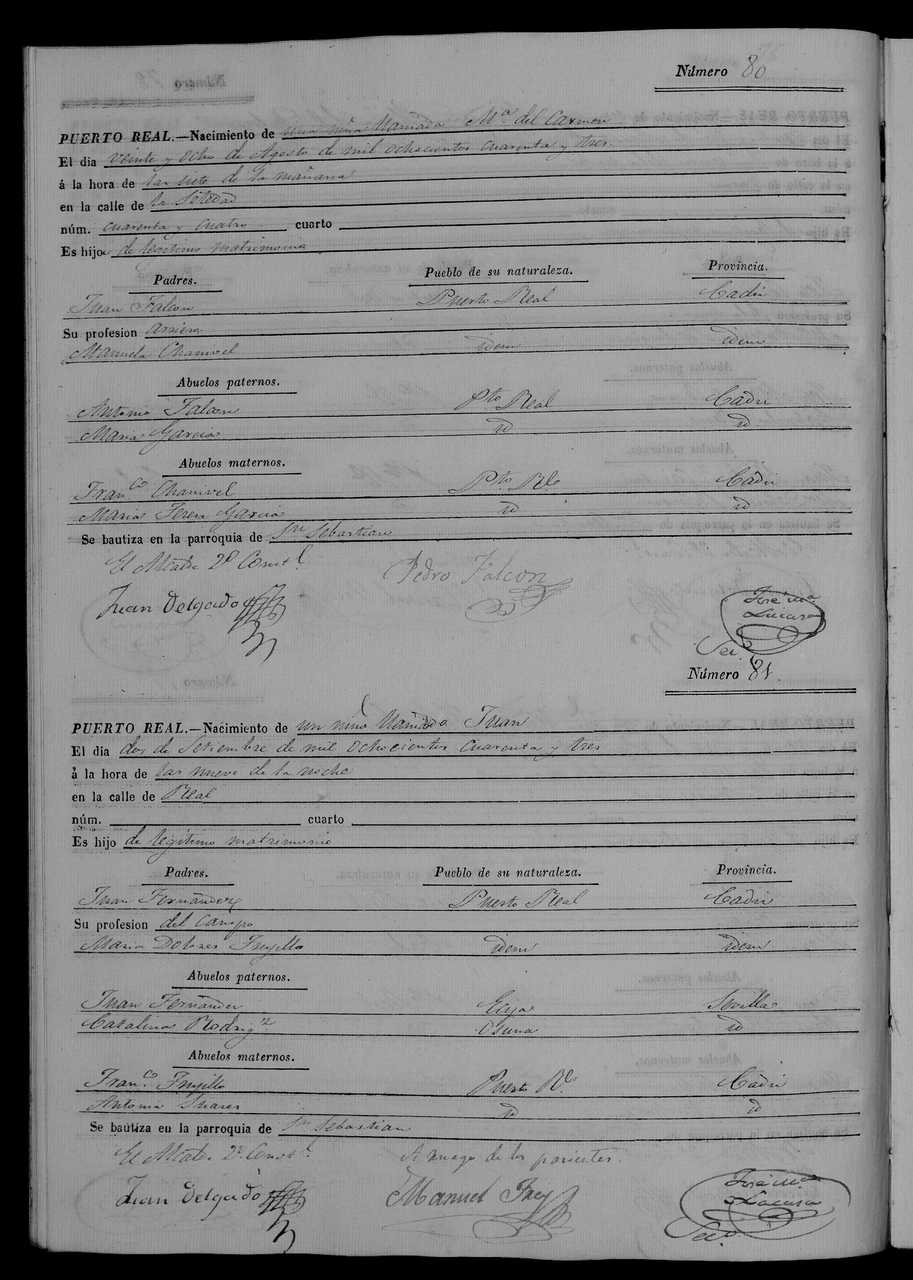 Número 80
PUERTO REAL.—Nacimiento de una niña llamada Mª del Carmen
El dia veinte y ocho de Agosto de mil ochocientos cuarenta y tres
á la hora de las siete de la mañana
en la calle de la Soledad
núm. cuarenta y cuatro cuarto
Es hijo de legitimo matrimonio
Padres. Pueblo de su naturaleza. Provincia.
Juan Falcon Puerto Real Cadiz
Su profesion arriero
Manuela Chanivel idem idem
Abuelos paternos.
Antonio Falcon Pto Real Cadiz
Maria Garcia id id
Abuelos maternos.
Franco Chanivel Pto Rl Cadiz
Maria Teresa Garcia id id
Se bautiza en la parroquia de Sn Sebastian
El Alcalde 2º Constl
Juan Delgado Pedro Falcon José Mª
Lucasa
Número 81.
PUERTO REAL.—Nacimiento de un niño llamado Juan
El dia dos de Setiembre de mil ochocientos cuarenta y tres
á la hora de las nueve de la noche
en la calle de Real
núm. cuarto
Es hijo de legitimo matrimonio
Padres. Pueblo de su naturaleza. Provincia.
Juan Fernandez Puerto Real Cadiz
Su profesion del Campo
Maria Dolores Trujillo idem idem
Abuelos paternos.
Juan Fernandez Ecija Sevilla
Catalina Rodrigz Osuna id
Abuelos maternos.
Franco Trujillo Puerto Rl Cadiz
Antonia Suares id id
Se bautiza en la parroquia de Sn Sebastian
El Alcalde 2º Constl A ruego de los parientes.
Juan Delgado Manuel Frey José Mª
Lucasa